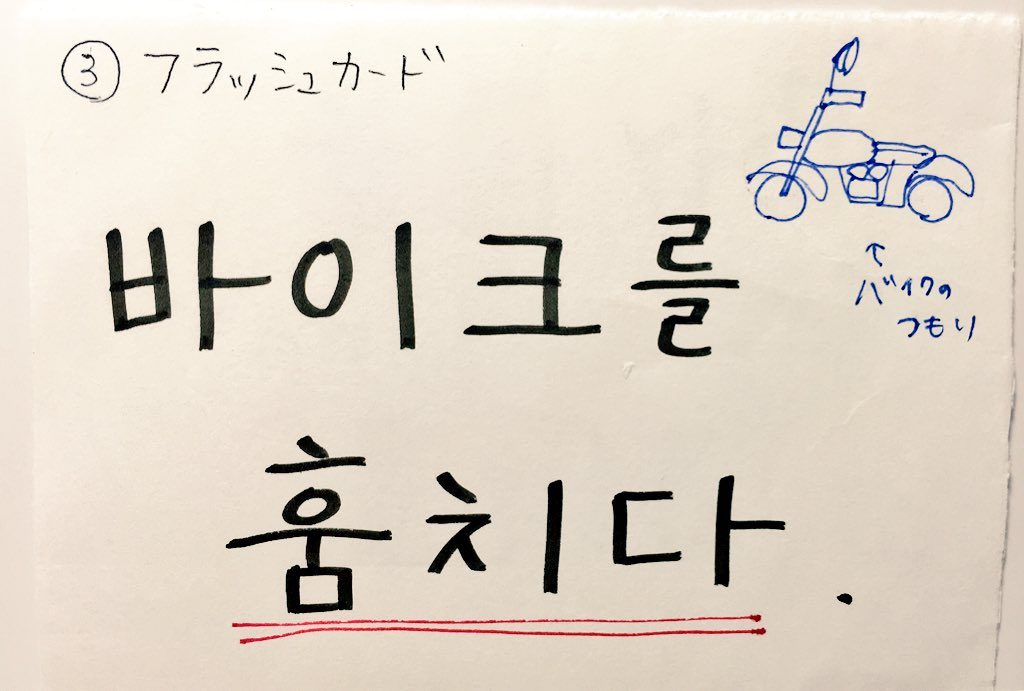 ③ フラッシュカード
바이크를
↑
バイクの
つもり
훔치다.